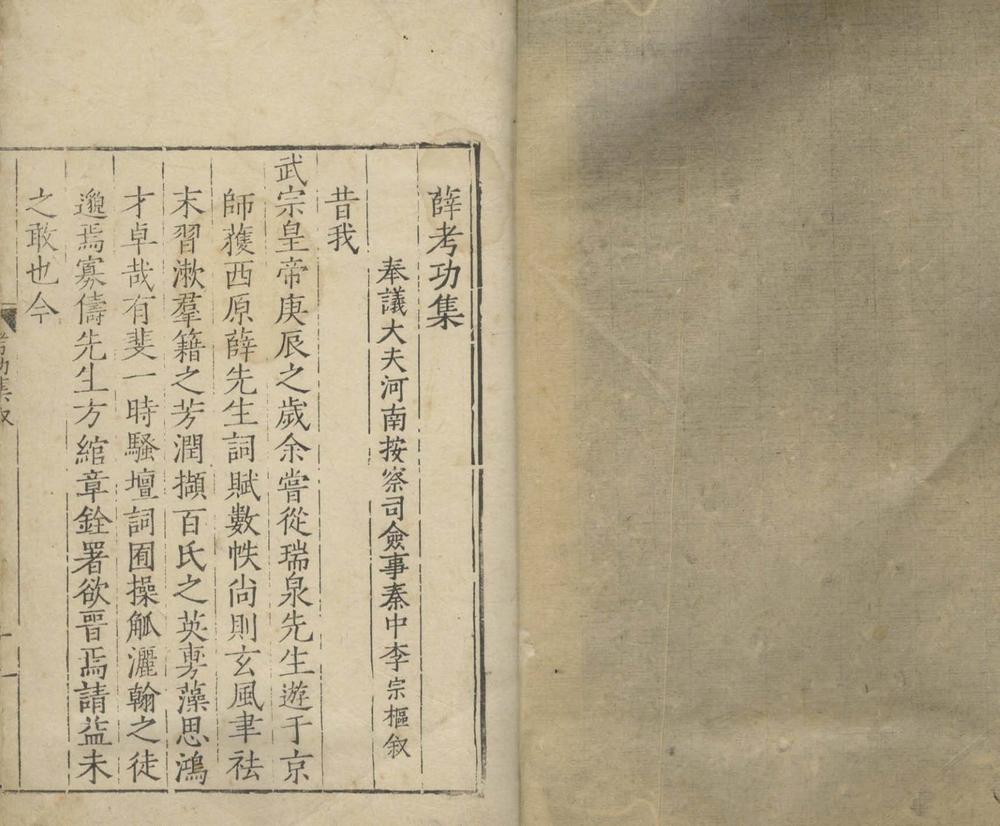 薛考功集
奉議大夫河南按察司僉事秦中李宗樞叙
昔我
武宗皇帝庚辰之歲余嘗從瑞泉先生遊于京
師蒦西原薛先生詞賦數帙尙則玄風聿祛
末習漱羣籍之芳潤擷百氏之英旉藻思鴻
才卓哉有斐一時騷壇詞囿操觚灑翰之徒
邈焉寡儔先生方綰章銓署欲晉焉請益未
之敢也今
考功集叙
一